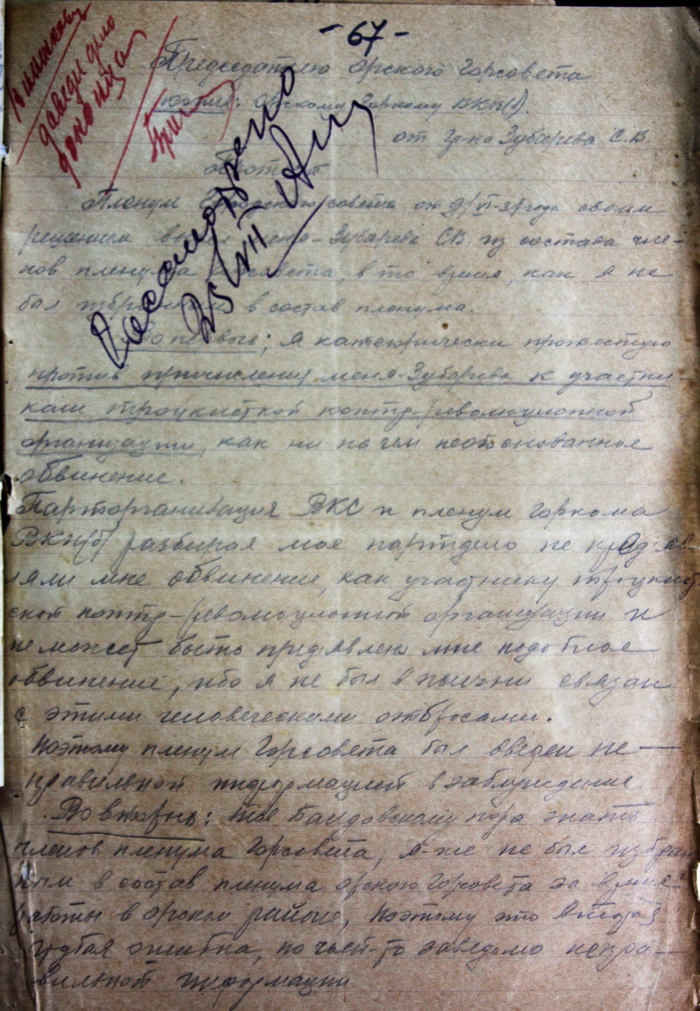 - 67 -
Председателю Орского Горсовета
копия: Орскому Горкому ВКП(б).
от гр-на Зубарева С.В.
Рассмотрено
25/VII
доведи дело
до конца
Пленум Горсовета от 9/VI-37 года своим
решением меня-Зубарева СВ. из состава чле-
нов пленума Горсовета, в то время, как я не
был избран в состав пленума.
Во первых; Я категорически протестую
против причисления меня-Зубарева к участни
кам троцкисткой контр-революционной
организации, как ни на чем необоснованное
обвинение.
Парторганизация ВКС и пленум горкома
ВКП(б) разбирая мое партдело не предъяв
ляли мне обвинение, как участнику троцкист
ской контр-революционной организации и
не может быть предявлено мне подобное
обвинение, ибо я не был в жизни связан
с этими человеческими отбросами.
Поэтому пленум Горсовета был введен не-
правильной информацией в заблуждение.
Во вторых: тов пора знать
членов пленума Горсовета, я-же не был избран
ным в состав пленума Орского Горсовета за время
работы в Орском районе, поэтому это вторая
грубая ошибка, по чьей-то заведомо непра-
вильной информации